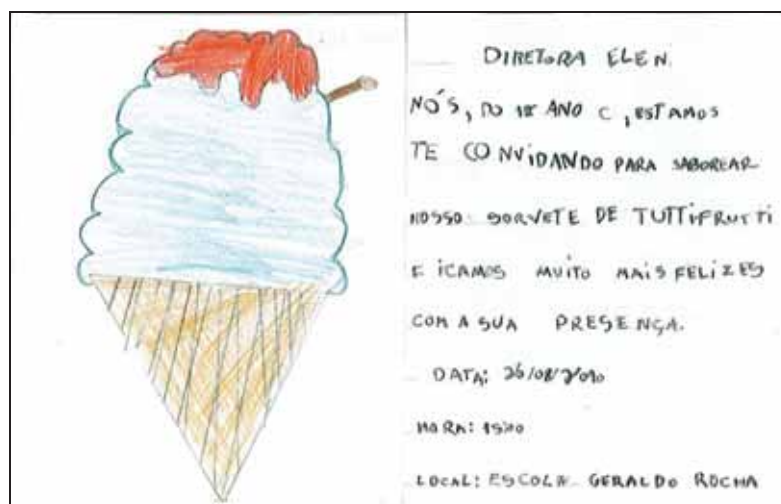 DIRETORA ELEN.
NÓS, DO 1º ANO C, ESTAMOS
TE CONVIDANDO PARA SABOREAR
NOSSO SORVETE DE TUTTIFRUTTI
FICAMOS MUITO MAIS FELIZES
COM A SUA PRESENÇA.
DATA: 26/08/2010
HORA: 15h00
LOCAL: ESCOLA GERALDO ROCHA